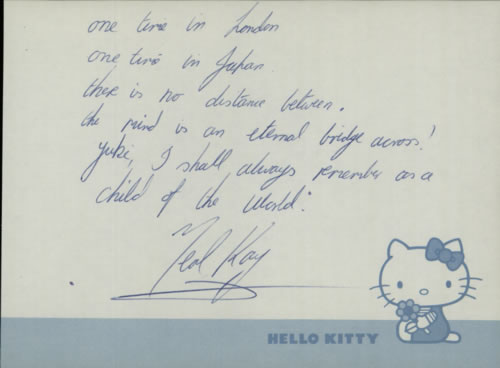 one time in London
one time in Japan
there is no distance between.
the mind is an eternal bridge across!
Yuki, I shall always remember as a
child of the world.
Neal Kay
HELLO KITTY